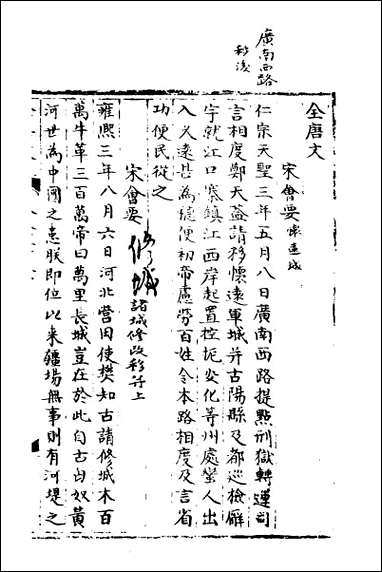 廣南西路
移後
全唐文
宋會要 懷遠城
仁宗天聖三年五月八日廣南西路提點刑獄轉運司
言相度鄭天益請移懷遠軍城并古陽縣及都巡檢廨
宇就江口寨鎮江西岸起置控扼安化等州處蠻人出
入又遠甚為穩便初帝慮勞百姓令本路相度及言省
功便民從之
宋會要
修城 諸城修改移并上
雍熙三年八月六日河北營田使樊知古請修城木百
萬牛革三百萬帝曰萬里長城豈在於此自古匈奴黃
河世為中國之患朕即位以來疆場無事則有河堤之